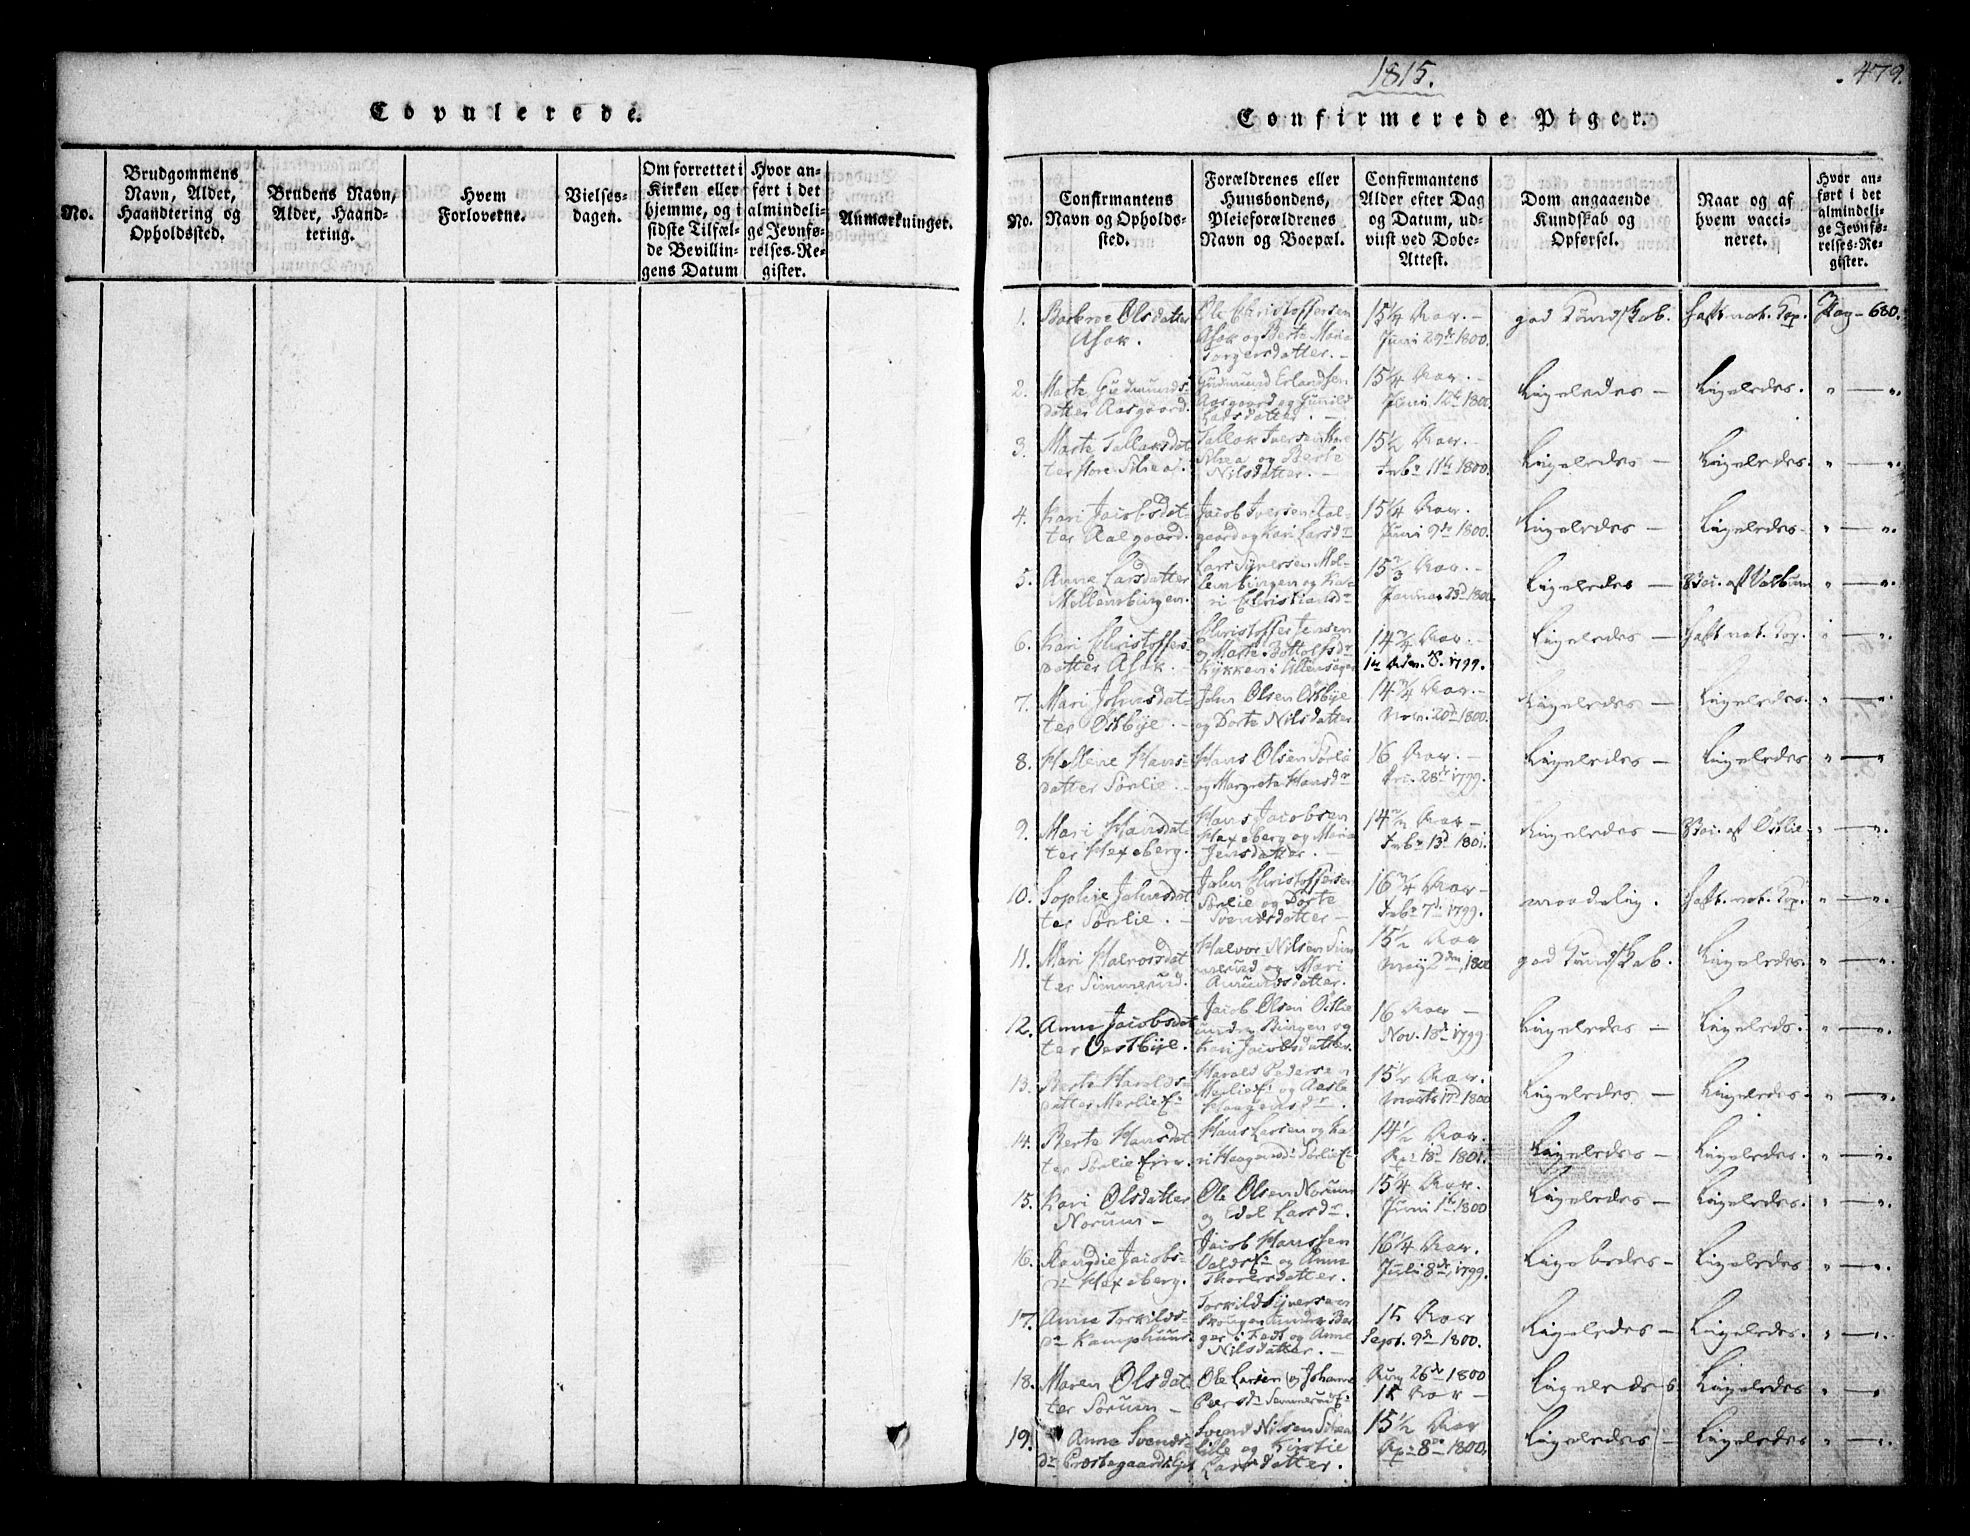 Copulerede.
No.
Brudgommens
Navn, Alder,
Haandtering og
Opholdssted.
Brudens Navn,
Alder, Haand-
tering.
Hvem
Forloverne.
Vielses-
dagen.
Om forrettet i
Kirken eller
hjemme, og i
sidste Tilfæl-
de Bevillin-
gens Datum
Hvor an-
ført i det
almindeli-
ge Jevnfø-
relses-Re-
gister.
Anmærkninger.
1815.
479.
Confirmerede Piger.
No.
Confirmantens
Navn og Opholds-
sted.
Forældrenes eller
Huusbondens,
Pleieforældrenes
Navn og Boepæl.
Confirmantens
Alder efter Dag
og Datum, ud-
viist ved Døbe-
Attest.
Dom angaaende
Kundskab og
Opførsel.
Naar og af
hvem vacci-
neret.
Hvor an-
ført i det
almindeli-
ge Jevnfø-
relses-Re-
gister.
1.
Barbroe Olsdatter
Asak.
Ole Christoffersen
Asak og Berte Maria
Torgersdatter.
15 1/4 Aar.
Juni 29de 1800.
god Kundskab.
haft nat. Kop.
Pag 680.
2.
Marte Gudmunds-
datter Aasgaard.
Gudmund Erlandsen
Aasgaard og Gunild
Larsdatter.
15 1/4 Aar.
Juni 12te 1800.
Ligeledes
Ligeledes.
3.
Marte Tallaksdat-
ter Store Silsea.
Tallak Iversen Store
Silsea og Berte
Nilsdatter.
15 1/2 Aar.
Febr 11te 1800.
Ligeledes
Ligeledes.
4.
Kari Jacobsdat-
ter Aalgaard.
Jacob Iversen Aal-
gaard og Kari Larsdr
15 1/4 Aar.
Juni 9de 1800.
Ligeledes
Ligeledes
5.
Anne Larsdatter
Mellembingen.
Lars Syversen Mel-
lembingen og Ka-
ri Christiansdr
15 2/3 Aar.
Januar 23d 1800.
Ligeledes
Vac. af Valbum
6.
Kari Christoffers-
datter Asak.
Christoffer Jensen
og Marte Bottolfsdr
Kykken i Ullensager
14 3/4 Aar.
1799.
Ligeledes
haft nat. Kop.
7.
Mari Johnsdat-
ter Østbye.
John Olsen Østbye
og Dorte Nilsdatter
14 3/4 Aar.
Nov. 20de 1800.
Ligeledes
Ligeledes.
8.
Hellene Hans-
datter Sørlie.
Hans Olsen Sørlie
og Margreta Hansdr
16 Aar.
28de 1799.
Ligeledes
Ligeledes
9.
Mari Hansdat-
ter Hexeberg.
Hans Jacobsen
Hexeberg og Maria
Jensdatter.
14 1/2 Aar
Febr 13d 1801.
Ligeledes
Vac. af Østlie
10.
Sophie Johnsdat-
ter Sørlie.
John Christoffersen
Sørlie og Dorte
Svendsdatter
16 3/4 Aar
Febr 7de 1799.
maadelig.
haft. nat. Kop.
11.
Mari Halvorsdat-
ter Simmerud.
Halvor Nilsen Sim-
merud og Mari
Amundsdatter.
15 1/2 Aar
May 2den 1800
god Kundskab.
Ligeledes.
12.
Anne Jacobsdat-
ter Oestbye.
Jacob Olsen Ostlie
under Bingen og
Kari Jacobsdatter.
16 Aar
Nov. 18de 1799
Ligeledes
Ligeleds.
13.
Berte Harolds-
datter Merlie
Harald Pedersen
Merlie og Aase
Haagensdr.
15 1/2 Aar.
Marts 17d 1800
Ligeledes
Ligeledes.
14.
Berte Hansdat-
ter Sørlie
Hans Larsen og Ka-
ri Haagensdr Sørlie
14 1/2 Aar.
Apr 18de 1801.
Ligeledes
Ligeledes.
15.
Kari Olsdatter
Norum
Ole Olsen Norum
og Edel Larsdr.
15 1/4 Aar.
Juni 1te 1800
Ligeledes
Ligeledes.
16.
Rangdie Jacobs-
dr Hexeberg.
Jacob Hanssen
og Anne
Thoresdatter.
16 1/4 Aar.
Juli 8de 1799.
Ligeledes
Ligeledes
17.
Anne Torkilds-
dr Kamphuus
Torkild Syversen
og Anne
Nilsdatter.
15 Aar
Sept. 9de 1800.
Ligeledes
Ligeledes.
18.
Maren Olsdat-
ter Sorum
Ole Larsen og Johanne
Peersdr
Aug 26de 1800
15 Aar
Ligeledes
Ligeledes
19.
Anne Svends-
dr Præstegaards
Svend Nilsen
lille og Kirstie
Larsdatter.
15 1/2 Aar
Apr 8de 1800.
Ligeledes
Ligeledes